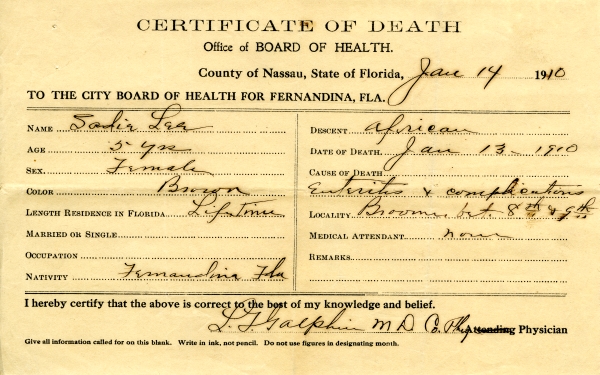 CERTIFICATE OF DEATH
Office of BOARD OF HEALTH.
County of Nassau, State of Florida, Jan 14 1910
TO THE CITY BOARD OF HEALTH FOR FERNANDINA, FLA.
NAME Sadie Lee
AGE 5 yrs
SEX. Female
COLOR Brown
LENGTH RESIDENCE IN FLORIDA Lifetime
MARRIED OR SINGLE
OCCUPATION
NATIVITY Fernandina Fla
DESCENT African
DATE OF DEATH. Jan 13 - 1910
CAUSE OF DEATH
Enteritis & complications
LOCALITY Broome bet 8th & 9th
MEDICAL ATTENDANT none
REMARKS
I hereby certify that the above is correct to the best of my knowledge and belief.
Galphin M D Co. Phy Attending Physician
Give all information called for on this blank. Write in ink, not pencil. Do not use figures in designating month.